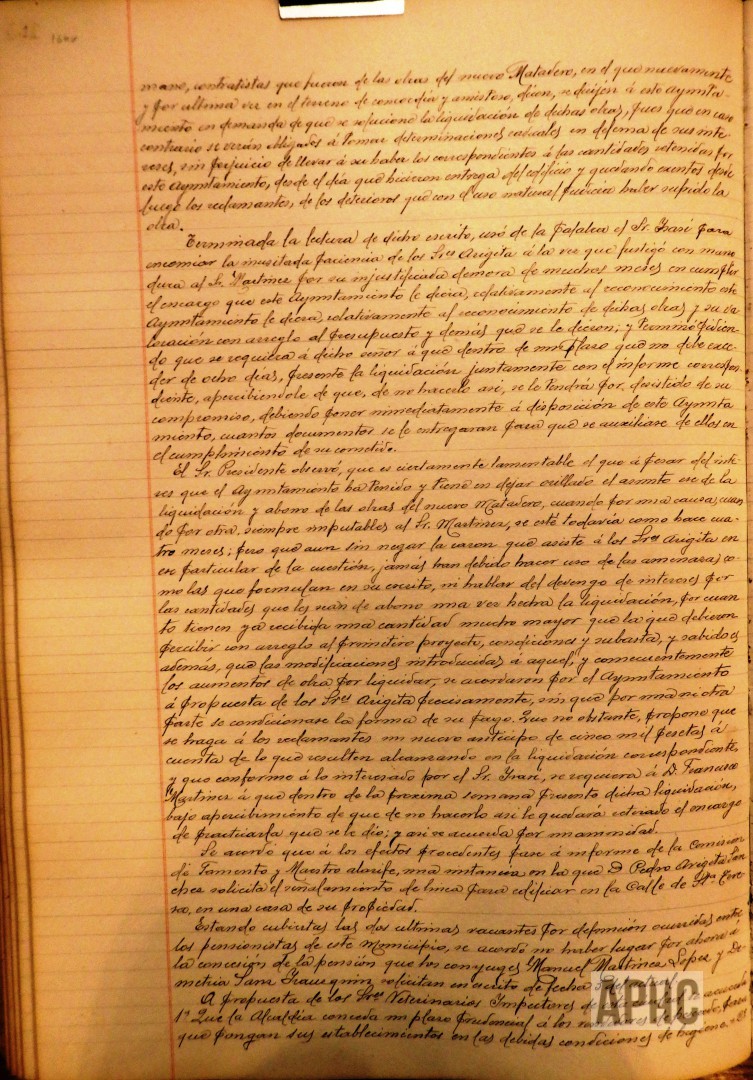 mano, contratistas que fueron de las obras del nuevo Matadero, en el que nuevamente
y por ultima vez en el terreno de concordia y amistoso, dicen, se dirijen á este Ayunta-
miento en demanda de que se solucione la liquidación de dichas obras, pues que en caso
contrario se verán obligados á tomar determinaciones radicales en defensa de sus inte-
reses, sin perjuicio de llevar á su haber los correspondientes á las cantidades retenidas por
este Ayuntamiento, desde el día que hicieron entrega del edificio y quedando exentos desde
luego los reclamantes, de los deterioros que con el uso natural pudiera haber sufrido la
obra.
Terminada la lectura de dicho escrito, usó de la palabra el Sr. para
encomiar la inusitada paciencia de los Sres Arigita á la vez que fustigó con mano
dura al Sr. Martinez por su injustificada demora de muchos meses en cumplir
el encargo que este Ayuntamiento le diera, relativamente al reconocimiento este
Ayuntamiento le diera, relativamente al reconocimiento de dichas obras y su va-
loración con arreglo al presupuesto y demás que se le dieron; y terminó pidien-
do que se requiera á dicho señor á que dentro de un plazo que no debe exce-
der de ocho dias, presente la liquidación juntamente con el informe correspon-
diente, apercibiendole de que, de no hacerlo asi, se le tendrá por desistido de su
compromiso, debiendo poner inmediatamente á disposición de este Ayunta
miento, cuantos documentos se le entregaran para que se auxiliase de ellos en
el cumplimiento de su cometido.
El Sr. Presidente observó, que es ciertamente lamentable el que á pesar del inte-
res que el Ayuntamiento ha tenido y tiene en dejar orillado el asunto ese de la
liquidación y abono de las obras del nuevo Matadero, cuando por una causa, cuan
do por otra, siempre imputables al Sr. Martinez, se esté todavía como hace cua-
tro meses; pero que aun sin negar la razon que asiste á los Sres Arigita en
ese particular de la cuestión, jamás han debido hacer uso de las amenazas co-
mo las que formulan en su escrito, ni hablar del devengo de intereses por
las cantidades que les sean de abono una vez hecha la liquidación, por cuan
to tienen ya recibida una cantidad mucho mayor que la que debieron
percibir con arreglo al primitivo proyecto, condiciones y subasta, y sabido es
además, que las modificaciones introducidas á aquel, y consecuentemente
los aumentos de obra por liquidar, se acordaron por el Ayuntamiento
á propuesta de los Sres Arigita precisamente, sin que por una ni otra
parte se condicionase la forma de su pago. Que no obstante, propone que
se haga á los reclamantes un nuevo anticipo de cinco mil pesetas á
cuenta de lo que resulten alcanzando en la liquidación correspondiente,
y que conforme á lo interesado por el Sr. se requiera á D. Francisco
Martinez á que dentro de la proxima semana presente dicha liquidación,
bajo apercibimiento de que de no hacerlo asi le quedará retirado el encargo
de practicarla que se le dió; y asi se acuerda por unanimidad.
Se acordó que á los efectos procedentes pase á informe de la Comision
de Fomento y Maestro alarife, una instancia en la que D. Pedro Arigita San
chez solicita el señalamiento de linea para edificar en la Calle de Sta. Tere-
sa, en una casa de su propiedad.
Estando cubiertas las dos ultimas vacantes por defunción ocurridas entre
los pensionistas de este Municipio, se acordó no haber lugar por ahora á
la concesión de la pensión que los conyuges Manuel Martinez Lopez y De-
metria Sanz solicitan en escrito de fecha
A propuesta de los Sres Veterinarios Inspectores de
1º Que la Alcaldía conceda un plazo prudencial á los para
que pongan sus establecimientos en las debidas condiciones de higiene.
APHC